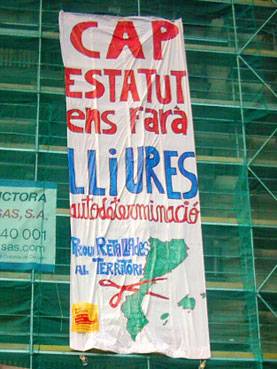 CAP
ESTATUT
ens farà
LLIURES
autodeterminació
PROU RETALLADES
AL TERRITORI
UCTORA
SAS, S.A.
40 001
sas.com